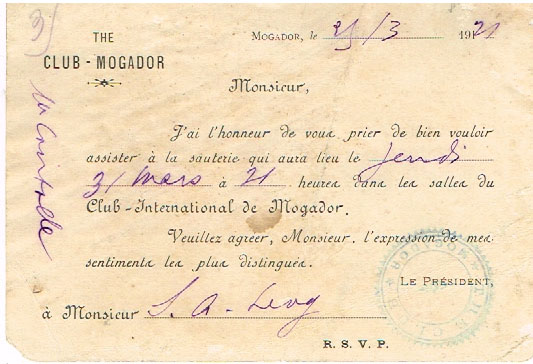 THE
CLUB - MOGADOR
MOGADOR, le 25/3 1921
Monsieur,
J'ai l'honneur de vous prier de bien vouloir
assister à la sauterie qui aura lieu le jeudi
31 mars à 21 heures dans les salles du
Club-International de Mogador.
Veuillez agréer, Monsieur, l'expression de mes
sentiments les plus distingués.
LE PRÉSIDENT,
à Monsieur S. A. Levy
R. S. V. P.